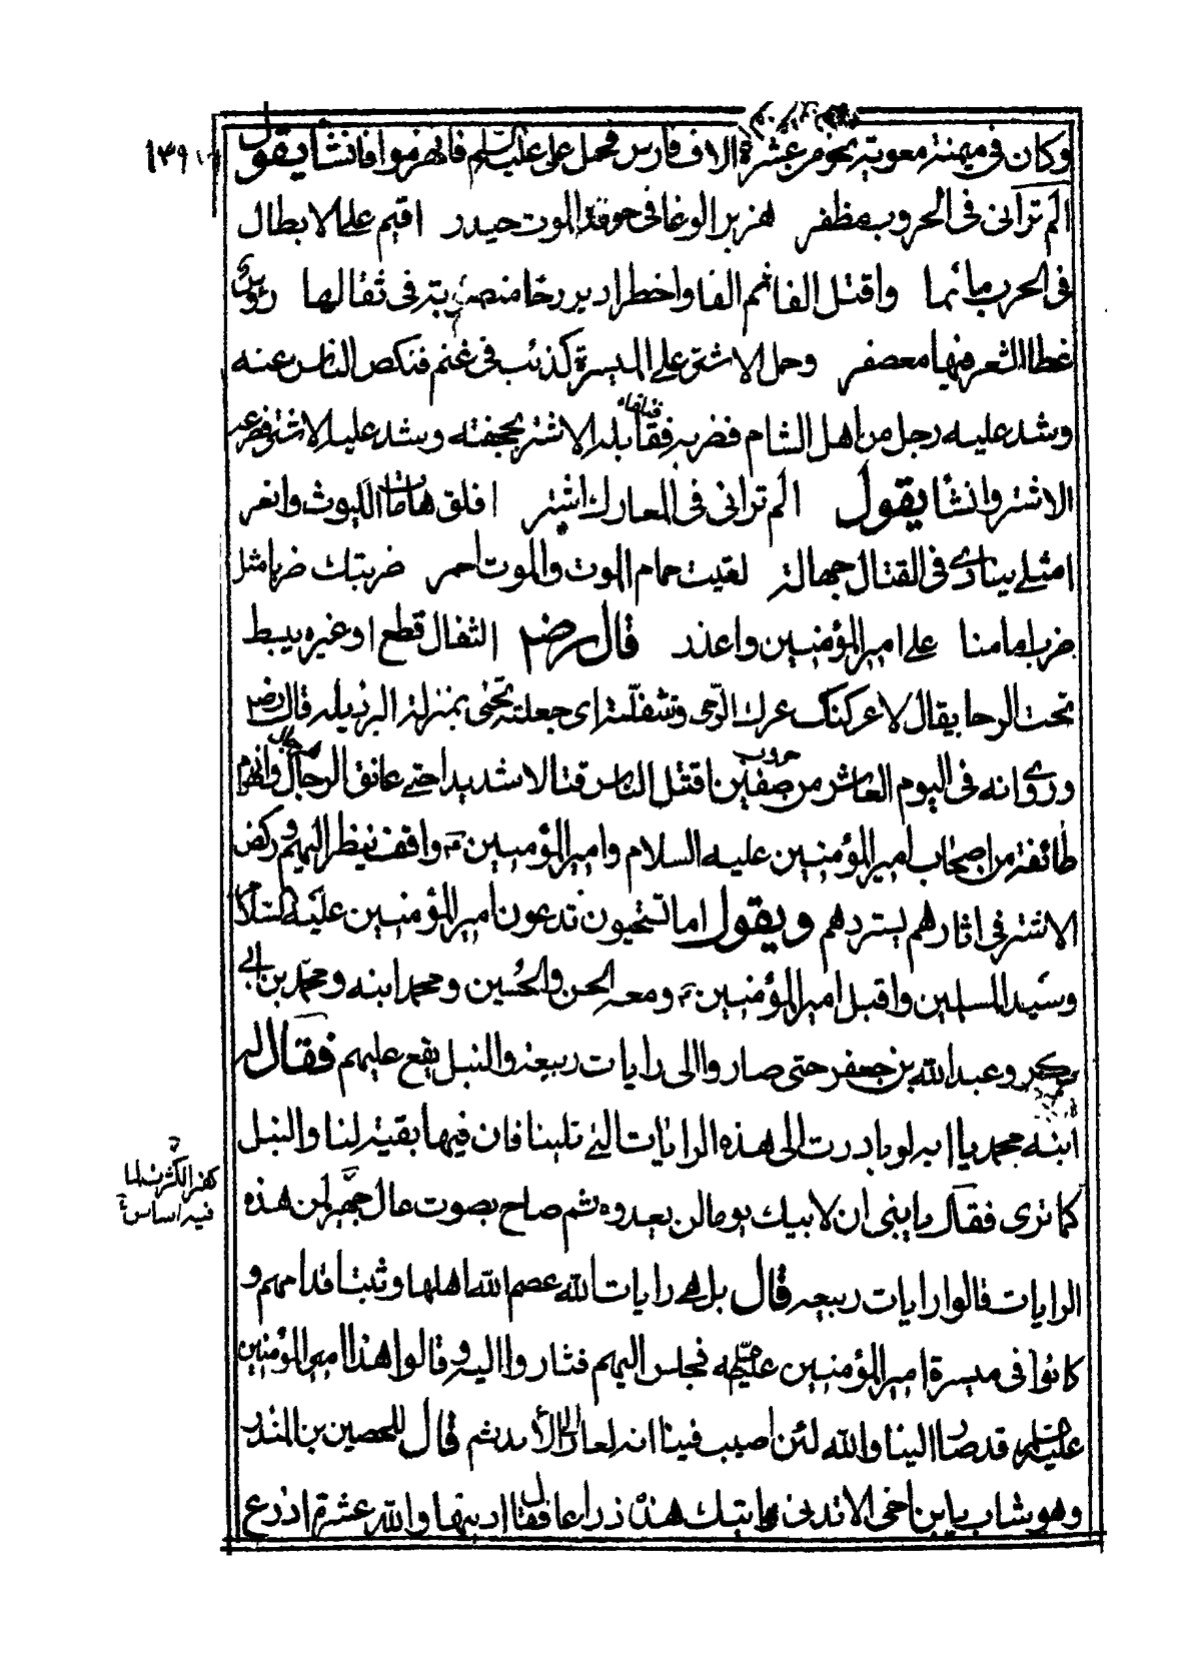 وكان في ميمنة معوية نحو من عشرة الاف فارس فحمل علي عليه السلم فانهزموا فانشأ يقول
١٣٩
الم تراني في الحروب مظفر هزبر الوغا في حومة الموت حيدر اقيم على الابطال
في الحرب مأتما واقتل الفا ثم الفا واخطر ادير رحا منصوبة في ثفالها رؤس
غطا الشعر فيها معصفر وحمل الاشتر على الميسرة كذئب في غنم فنكص الناس عنه
وشد عليه رجل من اهل الشام فضربه فقابله الاشتر بحجفته وشد عليه الاشتر
الاشتر وانشأ يقول الم تراني في المعارك اشتر افلق هامات الليوث وانعر
امثلي ينادى في القتال جهالة لقيت حمام الموت والموت احمر ضربتك ضربا مثل
ضرب امامنا علي امير المؤمنين واعذر قال رضي الثفال قطع او غيره يبسط
تحت الرحا يقال لاعركنك عرك الرحى وتثفلته اي جعلته تحتي بمنزلة قال رضي
وروى انه في اليوم العاشر من حروب صفين اقتتل الناس قتالا شديدا حتى عانق الرجال الرجال وانهزم
طائفة من اصحاب امير المؤمنين عليه السلام وامير المؤمنين ع واقف ينظر اليهم وركض
الاشتر في اثارهم يستردهم ويقول اما تستحيون تدعون امير المؤمنين عليه السلام
وسيد المسلمين واقبل امير المؤمنين ع ومعه الحسن والحسين ومحمد ابنه ومحمد بن ابي
بكر وعبد الله بن جعفر حتى صاروا الى رايات ربيعة والنبل يقع عليهم فقال له
ابنه محمد يا ابه لو بادرت الى هذه الرايات التي تلينا فان فيها بقية لنا والنبل
كما ترى فقال يا بني ان لابيك يوما لن يعدوه ثم صاح بصوت عال جهير لمن هذه
الرايات قالوا رايات ربيعه قال بل هي رايات الله عصم الله اهلها وثبت اقدامهم و
كانوا في ميسرة امير المؤمنين عليه السلم فجلس اليهم فثاروا اليه وقالوا هذا امير المؤمنين
عليه السلم قد صار الينا والله لئن اصيب فينا انه لعار الابد ثم قال للحصين بن المنذر
وهو شاب يا بن اخي الا تدني رايتك هذه ذراعا فقال ادنيها والله عشرة اذرع